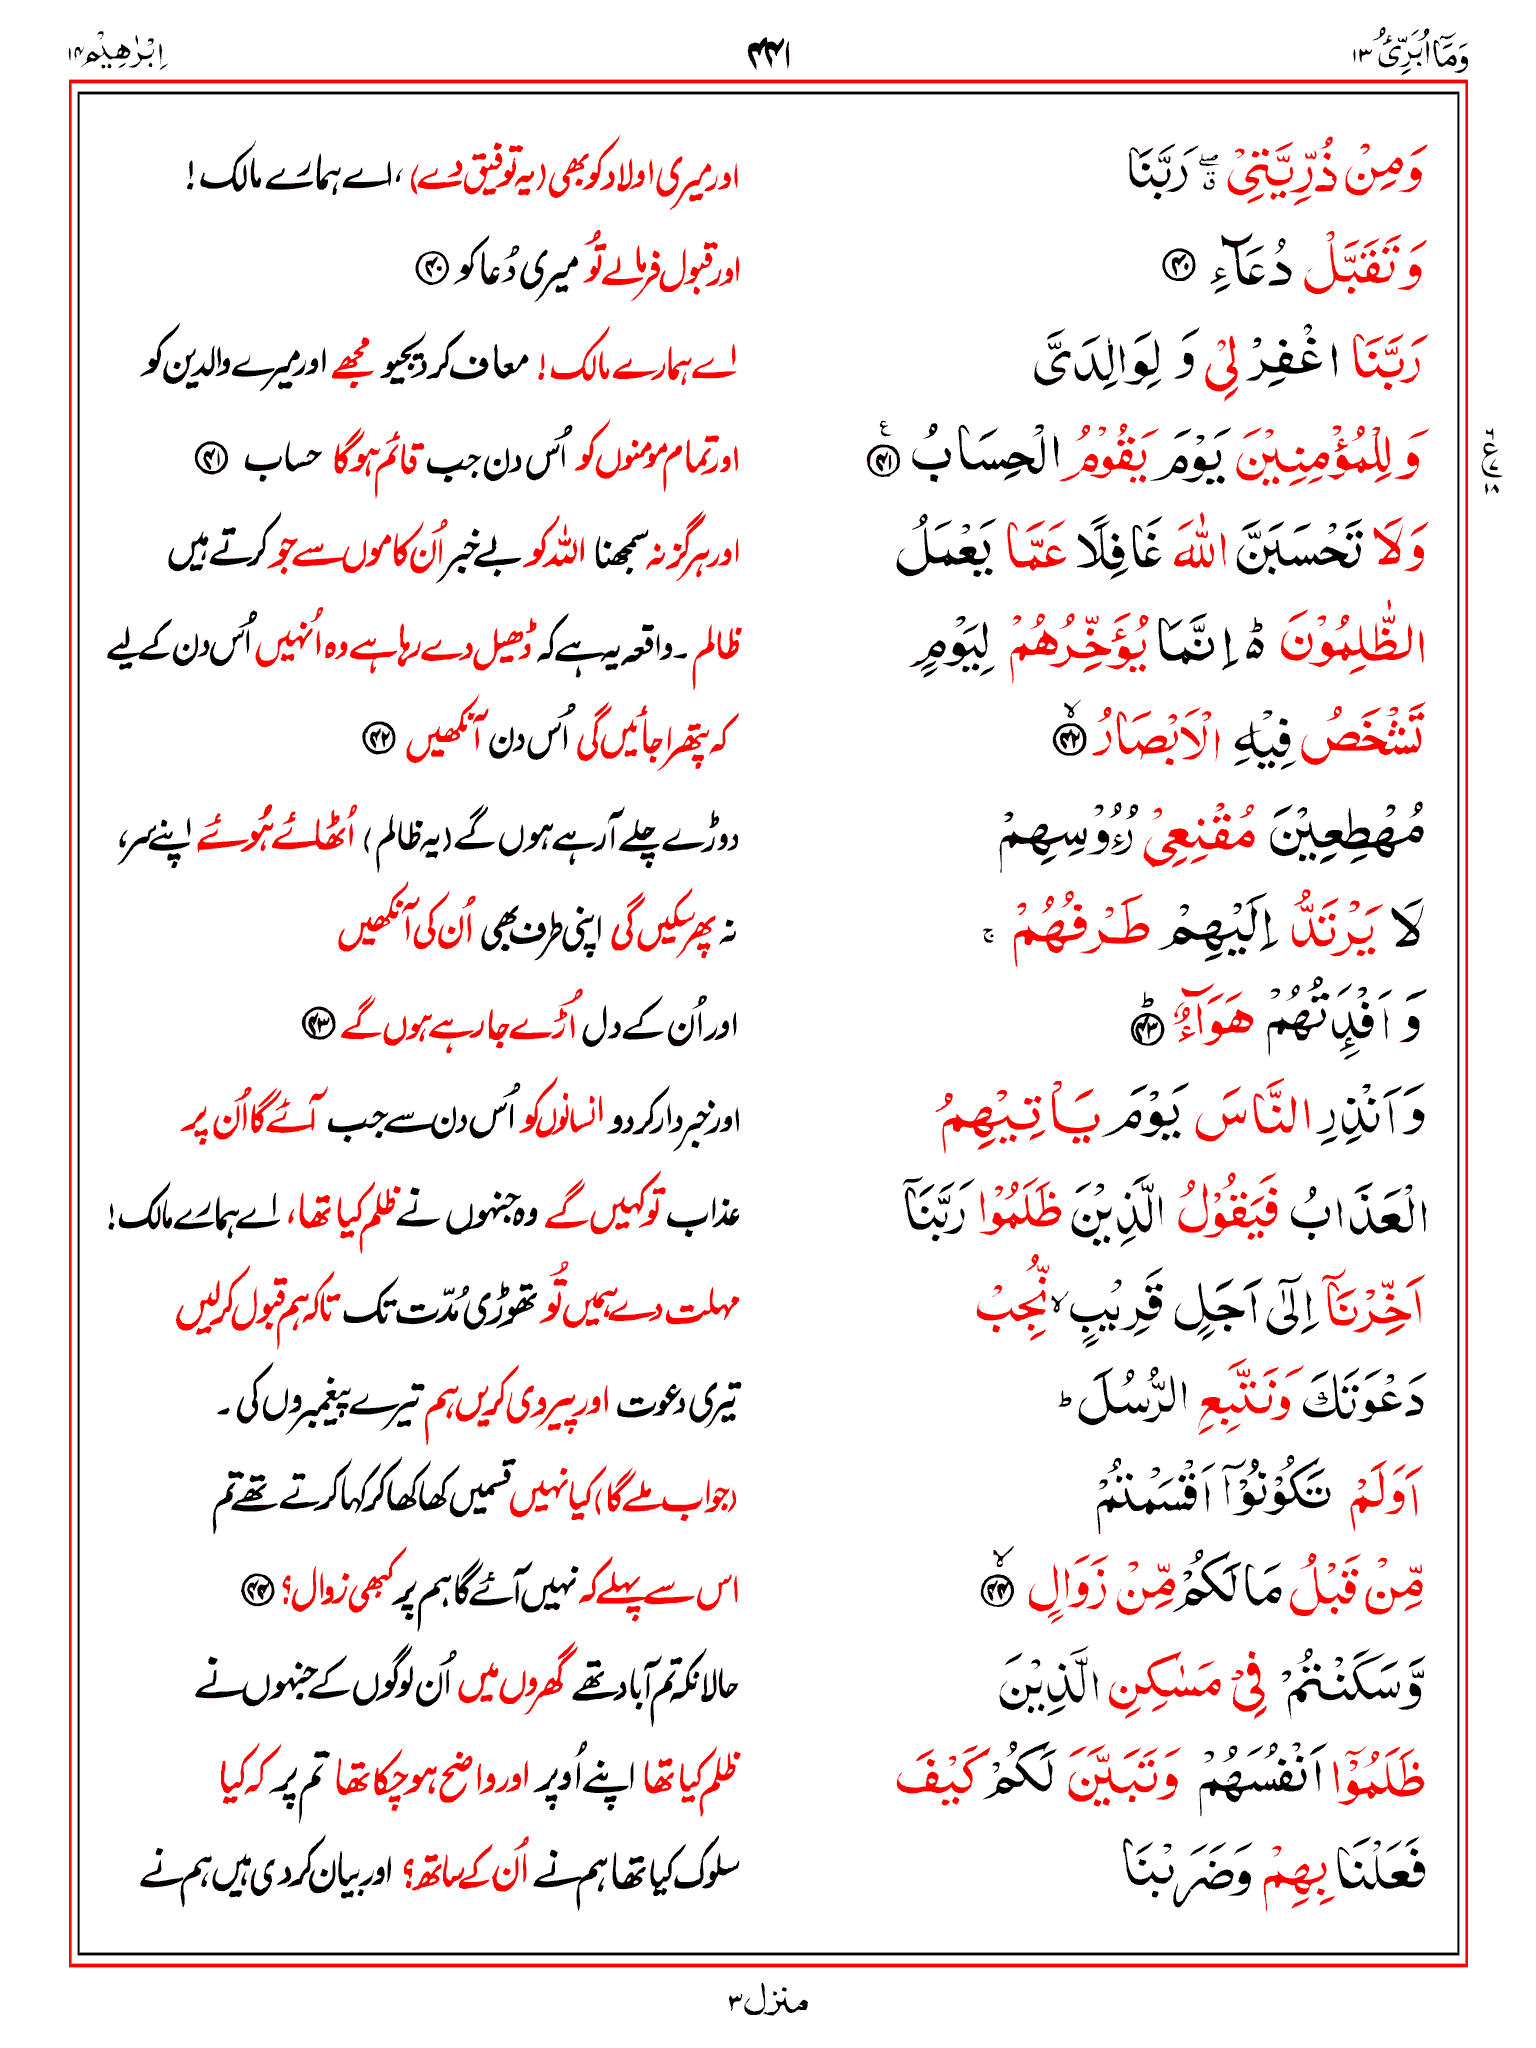 وَمَآ اُبَرِّئُ ۱۳
۴۴۱
اِبْرٰهِیْم ۱۴
وَمِنْ ذُرِّیَّتِیْ ۖۗ رَبَّنَا
اور میری اولاد کو بھی (یہ توفیق دے) ، اے ہمارے مالک !
وَتَقَبَّلْ دُعَآءِ ﴿۴۰﴾
اور قبول فرمالے تُو میری دُعا کو ﴿۴۰﴾
رَبَّنَا اغْفِرْ لِیْ وَ لِوَالِدَیَّ
اے ہمارے مالک ! معاف کر دیجیو مجھے اور میرے والدین کو
وَ لِلْمُؤْمِنِیْنَ یَوْمَ یَقُوْمُ الْحِسَابُ ﴿۴۱﴾ ع
اور تمام مومنوں کو اُس دن جب قائم ہوگا حساب ﴿۴۱﴾
وَلَا تَحْسَبَنَّ اللّٰهَ غَافِلًا عَمَّا یَعْمَلُ
اور ہرگز نہ سمجھنا اللہ کو بے خبر اُن کاموں سے جو کرتے ہیں
الظّٰلِمُوْنَ ۵ؕ اِنَّمَا یُؤَخِّرُهُمْ لِیَوْمٍ
ظالم ۔ واقعہ یہ ہے کہ ڈھیل دے رہا ہے وہ اُنہیں اُس دن کے لیے
تَشْخَصُ فِیْهِ الْاَبْصَارُ ﴿۴۲﴾ ۙ
کہ پتھرا جائیں گی اُس دن آنکھیں ﴿۴۲﴾
مُهْطِعِیْنَ مُقْنِعِیْ رُءُوْسِهِمْ
دوڑے چلے آرہے ہوں گے (یہ ظالم) اُٹھائے ہُوئے اپنے سر،
لَا یَرْتَدُّ اِلَیْهِمْ طَرْفُهُمْ ۚ
نہ پھر سکیں گی اپنی طرف بھی اُن کی آنکھیں
وَ اَفْـِٕدَتُهُمْ هَوَآءٌ ﴿۴۳﴾ ؕ
اور اُن کے دل اُڑے جارہے ہوں گے ﴿۴۳﴾
وَ اَنْذِرِ النَّاسَ یَوْمَ یَاْتِیْهِمُ
اور خبردار کردو انسانوں کو اُس دن سے جب آئے گا اُن پر
الْعَذَابُ فَیَقُوْلُ الَّذِیْنَ ظَلَمُوْا رَبَّنَآ
عذاب تو کہیں گے وہ جنہوں نے ظلم کیا تھا، اے ہمارے مالک !
اَخِّرْنَآ اِلٰۤی اَجَلٍ قَرِیْبٍ ۙ نُّجِبْ
مہلت دے ہمیں تُو تھوڑی مُدّت تک تاکہ ہم قبول کرلیں
دَعْوَتَكَ وَنَتَّبِعِ الرُّسُلَ ؕ
تیری دعوت اور پیروی کریں ہم تیرے پیغمبروں کی ۔
اَوَلَمْ تَكُوْنُوْۤا اَقْسَمْتُمْ
(جواب ملے گا) کیا نہیں قسمیں کھا کھا کر کہا کرتے تھے تم
مِّنْ قَبْلُ مَا لَكُمْ مِّنْ زَوَالٍ ﴿۴۴﴾ ۙ
اس سے پہلے کہ نہیں آئے گا ہم پر کبھی زوال؟ ﴿۴۴﴾
وَّسَكَنْتُمْ فِیْ مَسٰكِنِ الَّذِیْنَ
حالانکہ تم آباد تھے گھروں میں اُن لوگوں کے جنہوں نے
ظَلَمُوْۤا اَنْفُسَهُمْ وَتَبَیَّنَ لَكُمْ كَیْفَ
ظلم کیا تھا اپنے اُوپر اور واضح ہوچکا تھا تم پر کہ کیا
فَعَلْنَا بِهِمْ وَضَرَبْنَا
سلوک کیا تھا ہم نے اُن کے ساتھ؟ اور بیان کردی ہیں ہم نے
منزل ۳